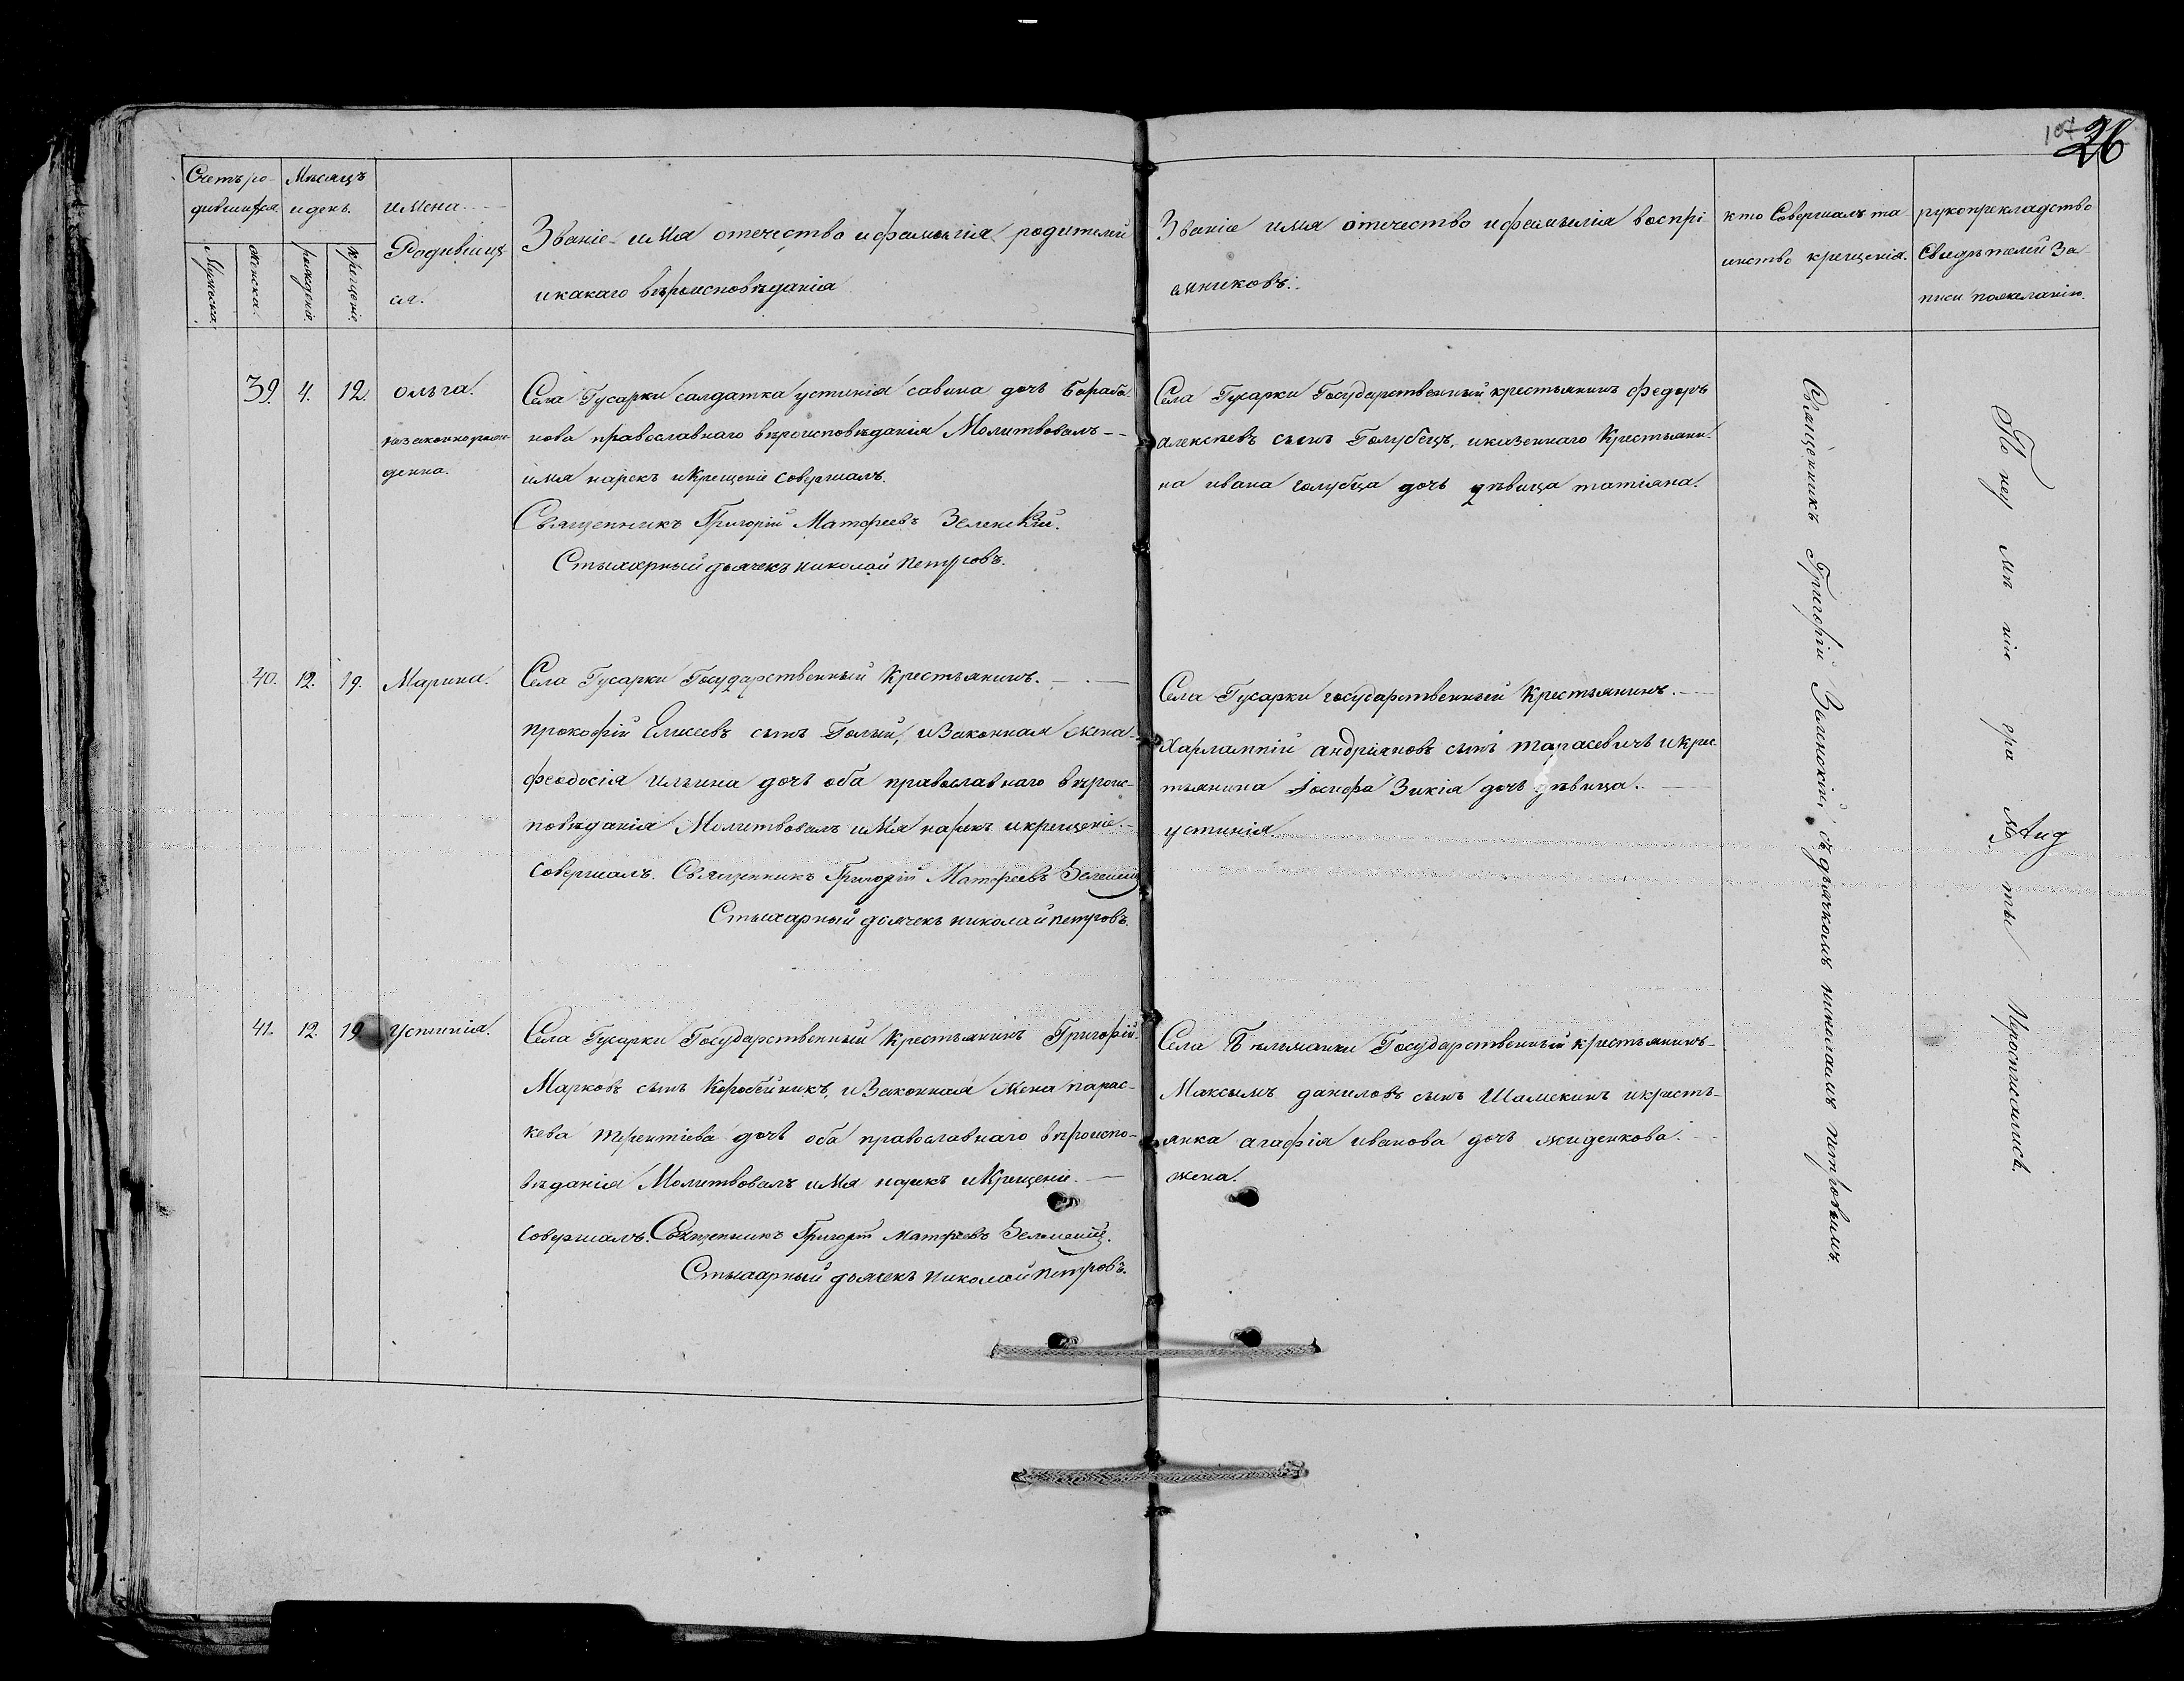 26
Счетъ ро-
дившихся.
Мѣсяцъ
и день.
Мужеска.
женска.
рожденіе.
крещеніе.
имена
Родившиц
ся.
Званіе имя отечество и фамилія родителей
и какаго вѣроисповѣданія
Званіе имя отечество и фамилія воспрі-
емниковъ.
кто Совершалъ та
инство крещенія.
рукоприкладство
Свидѣтелей За-
писи пожеланію.
39. 4. 12. ольга.
незаконнорож-
денна.
Села Гусарки салдатка устинія савина дочь Бараба-
нова православнаго вѣроисповѣданія Молитвовалъ
имя нарекъ и Крещеніе совершалъ.
Священникъ Григорій Матфеевъ Зеленскій.
Стыхарный дьячекъ николай петровъ.
Села Гусарки Государственный крестьянинъ федоръ
алексѣевъ сынъ Голубецъ, и казеннаго Крестьяни-
на ивана голубца дочь дѣвица татіяна.
40. 12. 19. Марина.
Села Гусарки Государственный Крестьянинъ.
прокофій Елисеевъ сынъ Голый, и Законная жена
феодосія ильина дочь оба православнаго вѣроис-
повѣданія Молитвовалъ имя нарекъ и крещеніе
совершалъ. Священникъ Григорій Матфеевъ Зеленскій
Стыхарный дьячекъ николай петровъ.
Села Гусарки государственный Крестьянинъ.
Харлампій андріяновъ сынъ тарасевичъ и крес
тьянина Іосифа Зикія дочь дѣвица.
устинія.
41. 12. 19 Устинія.
Села Гусарки Государственный Крестьянинъ Григорій
Марковъ сынъ Коробейникъ, и Законная Жена парас-
кева терентіева дочь оба православнаго вѣроиспо-
вѣданія Молитвовалъ имя нарекъ и Крещеніе.
совершалъ. Священникъ Григорій матфеевъ Зеленскій.
Стыхарный дьячекъ николай петровъ.
Села Бѣлманки Государственный крестьянинъ
Максымъ даниловъ сынъ Шамекинъ и кресть-
янка агафія иванова дочь жиденкова.
жена.
Священникъ Григорій Зеленскій, съ дьячкомъ николаемъ петровымъ.
По неу мѣ нію гра мо ты
Неросписались.